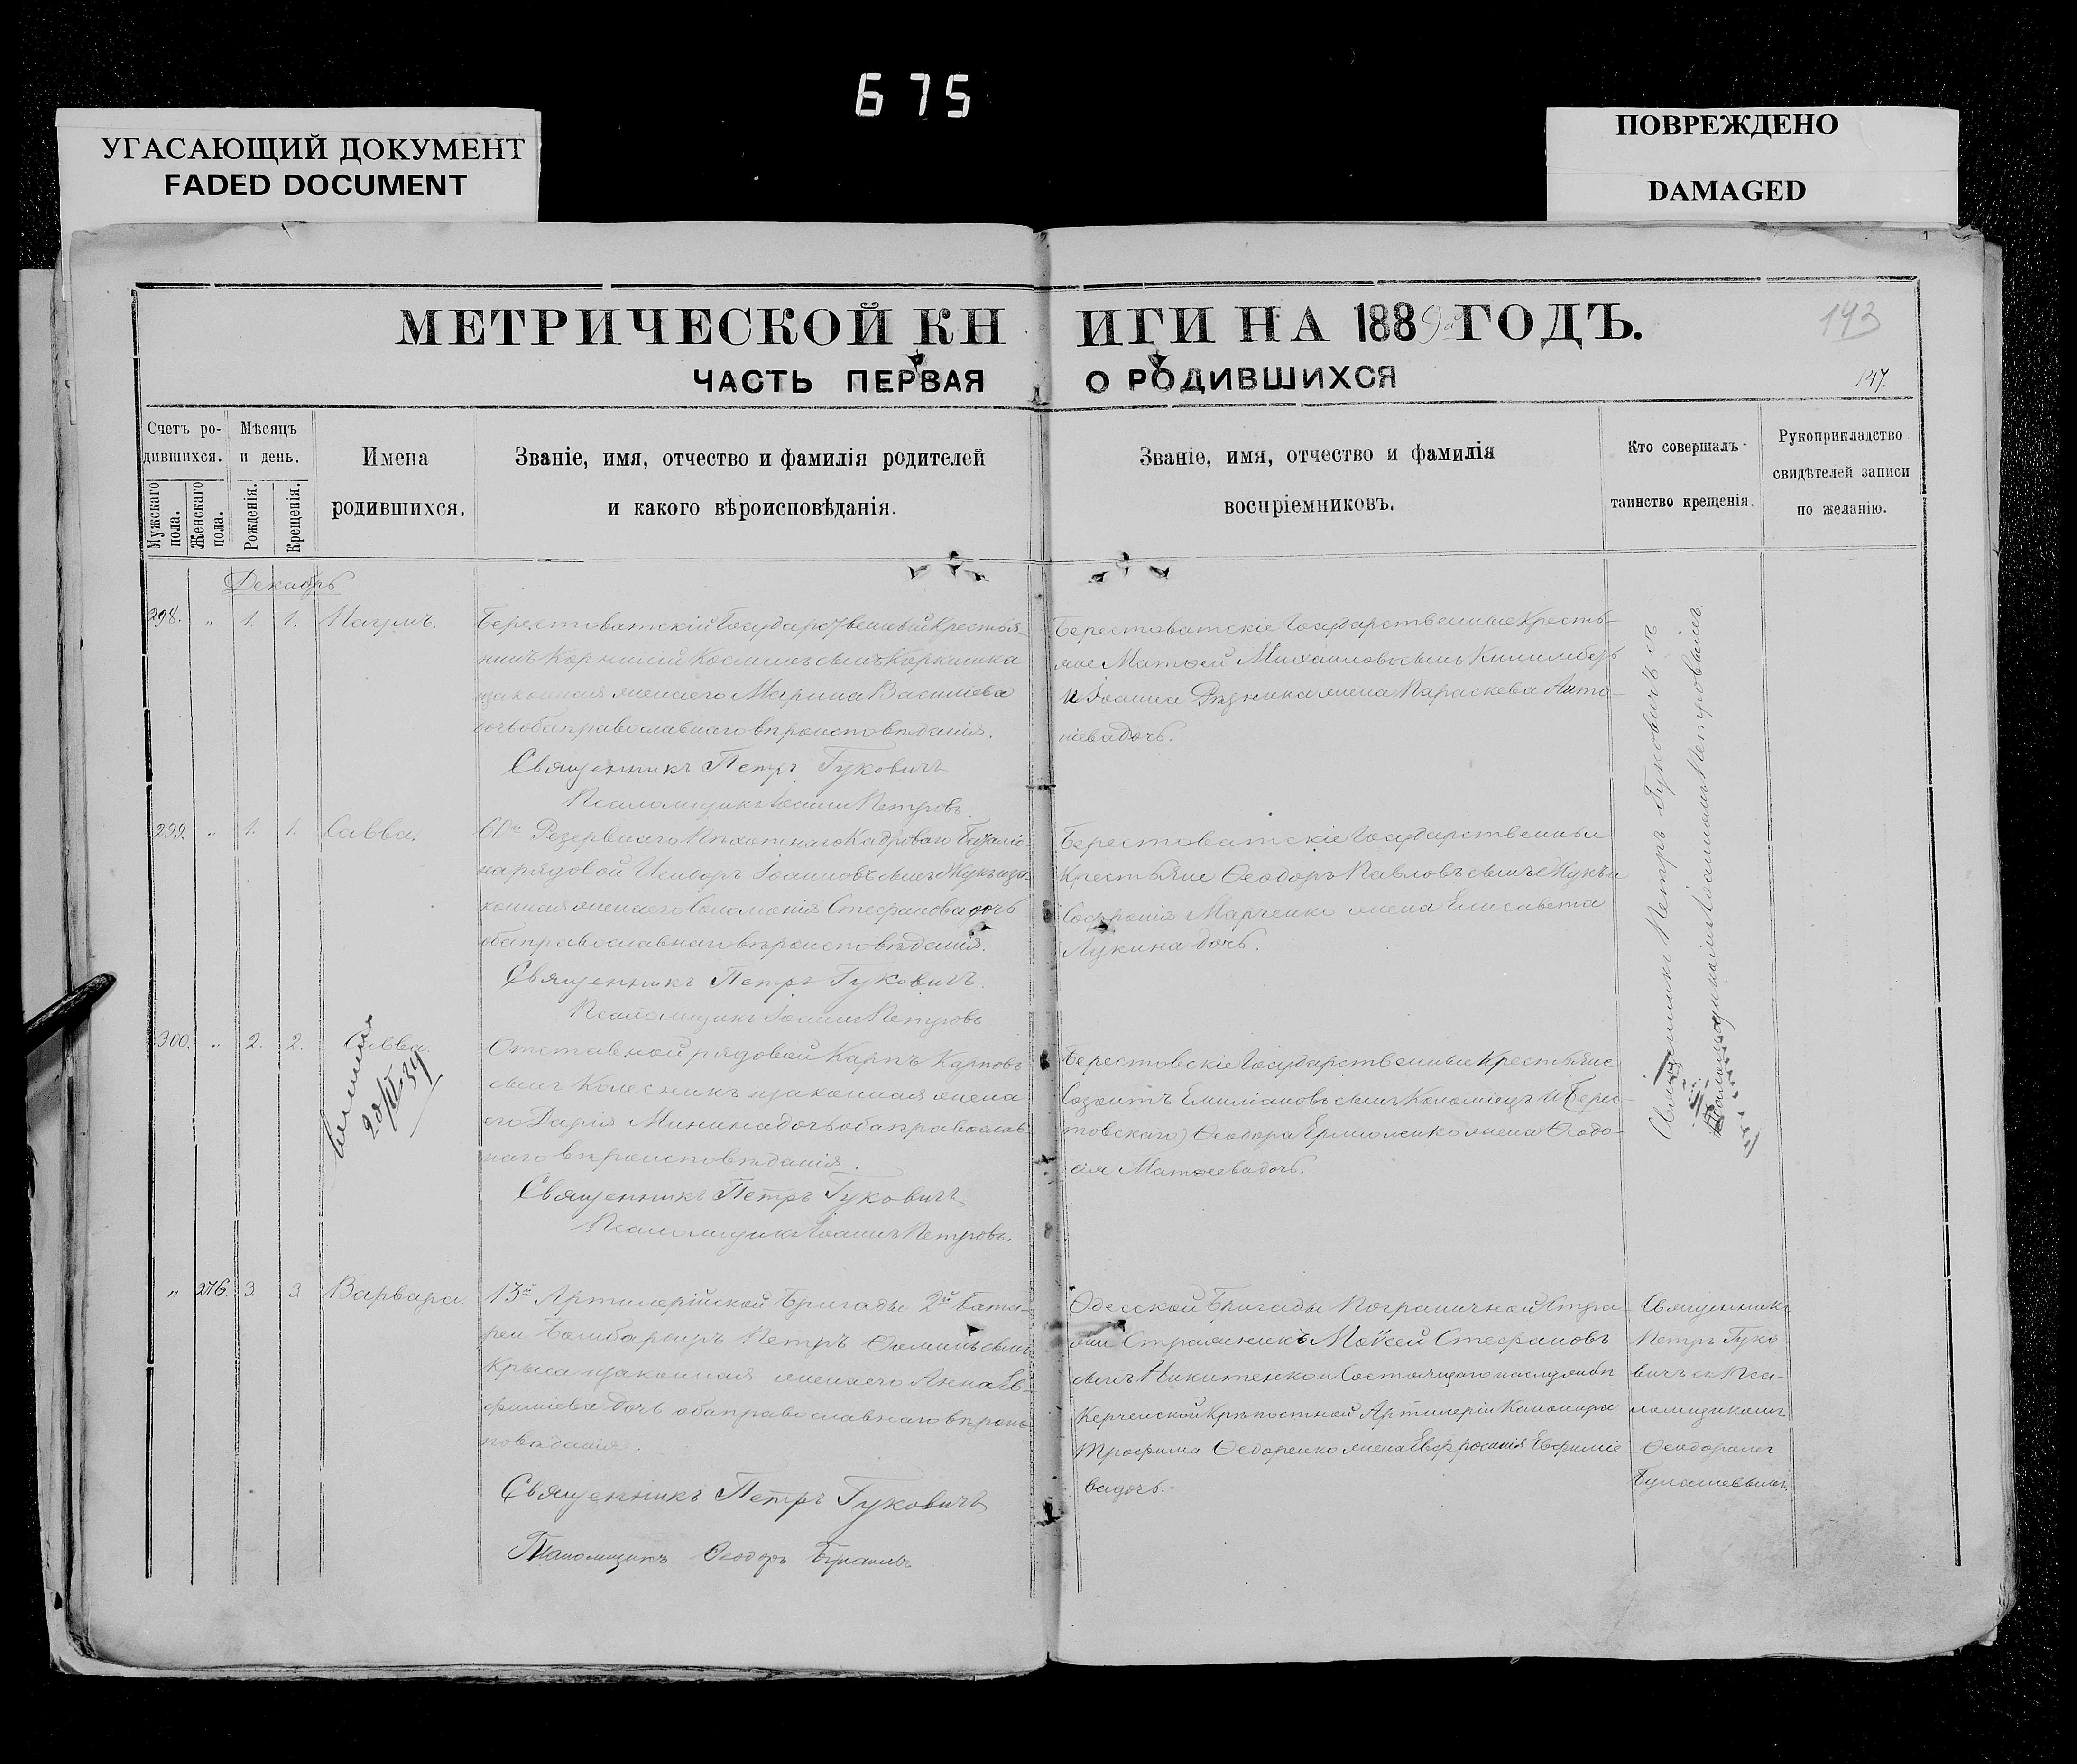 675
УГАСАЮЩИЙ ДОКУМЕНТ
FADED DOCUMENT
ПОВРЕЖДЕНО
DAMAGED
МЕТРИЧЕСКОЙ КНИГИ НА 1889й ГОДЪ.
143
ЧАСТЬ ПЕРВАЯ О РОДИВШИХСЯ
147.
Счетъ ро-
дившихся.
Мужскаго пола.
Женскаго пола.
Мѣсяцъ
и день.
Рожденія.
Крещенія.
Имена
родившихся.
Званіе, имя, отчество и фамилія родителей
и какого вѣроисповѣданія.
Званіе, имя, отчество и фамилія
воспріемниковъ.
Кто совершалъ
таинство крещенія.
Рукоприкладство
свидѣтелей записи
по желанію.
Декабрь
298. " 1. 1. Наумъ.
Берестоватскій Государственный Крестья-
нинъ Корнилій Косминъ сынъ
законная жена его Марина Василіева
дочь оба православнаго вѣроисповѣданія.
Священникъ Петръ Гуковичъ
Псаломщикъ Іоаннъ Петровъ.
Берестоватскіе Государственные Кресть-
яне Матѳей Михаиловъ сынъ
и Іоанна жена Параскева Анто-
ніева дочь.
Священникъ Петръ Гуковичъ съ
Псаломщикомъ Іоанномъ Петровымъ.
299. " 1. 1. Савва.
60го Резервнаго Пѣхотнаго Кадроваго Баталіо-
на рядовой Исидоръ Іоанновъ сынъ Жукъ и за-
конная жена его Соломонія Стефанова дочь
оба православнаго вѣроисповѣданія.
Священникъ Петръ Гуковичъ.
Псаломщикъ Іоаннъ Петровъ
Берестоватскіе Государственные
Крестьяне Ѳеодоръ Павловъ сынъ Жукъ и
Софронія Марченко жена Елисавета
Лукина дочь.
300. " 2. 2. Савва.
20/IV-34
Отставной рядовой Карпъ Карповъ
сынъ Колесникъ и законная жена
его Дарія Минина дочь оба православ-
наго вѣроисповѣданія.
Священникъ Петръ Гуковичъ
Псаломщикъ Іоаннъ Петровъ.
Берестовскіе Государственные Крестьяне
Созонтъ Емиліановъ сынъ Коломіецъ и Берес-
товскаго) Ѳеодора Ермоленко жена Ѳеодо-
сія Матѳеева дочь.
" 276. 3. 3. Варвара.
13й Артилерійской Бригады 2й Бата-
реи Бомбардиръ Петръ сынъ
Крыса и законная жена его Анна Ев-
фиміева дочь оба православнаго вѣроис-
повѣданія.
Священникъ Петръ Гуковичъ
Псаломщикъ Ѳеодоръ
Одесской Бригады Пограничной Стра-
жи Стражникъ Моѵсей Стефановъ
сынъ Никитенко и Состоящаго на службѣ
Керченской Крѣпостной Артилеріи Канонира
Трофима Ѳедоренко жена Евфросинія Евфиміе-
ва дочь.
Священникъ
Петръ Гуко-
вичъ съ Пса-
ломщикомъ
Ѳеодоромъ